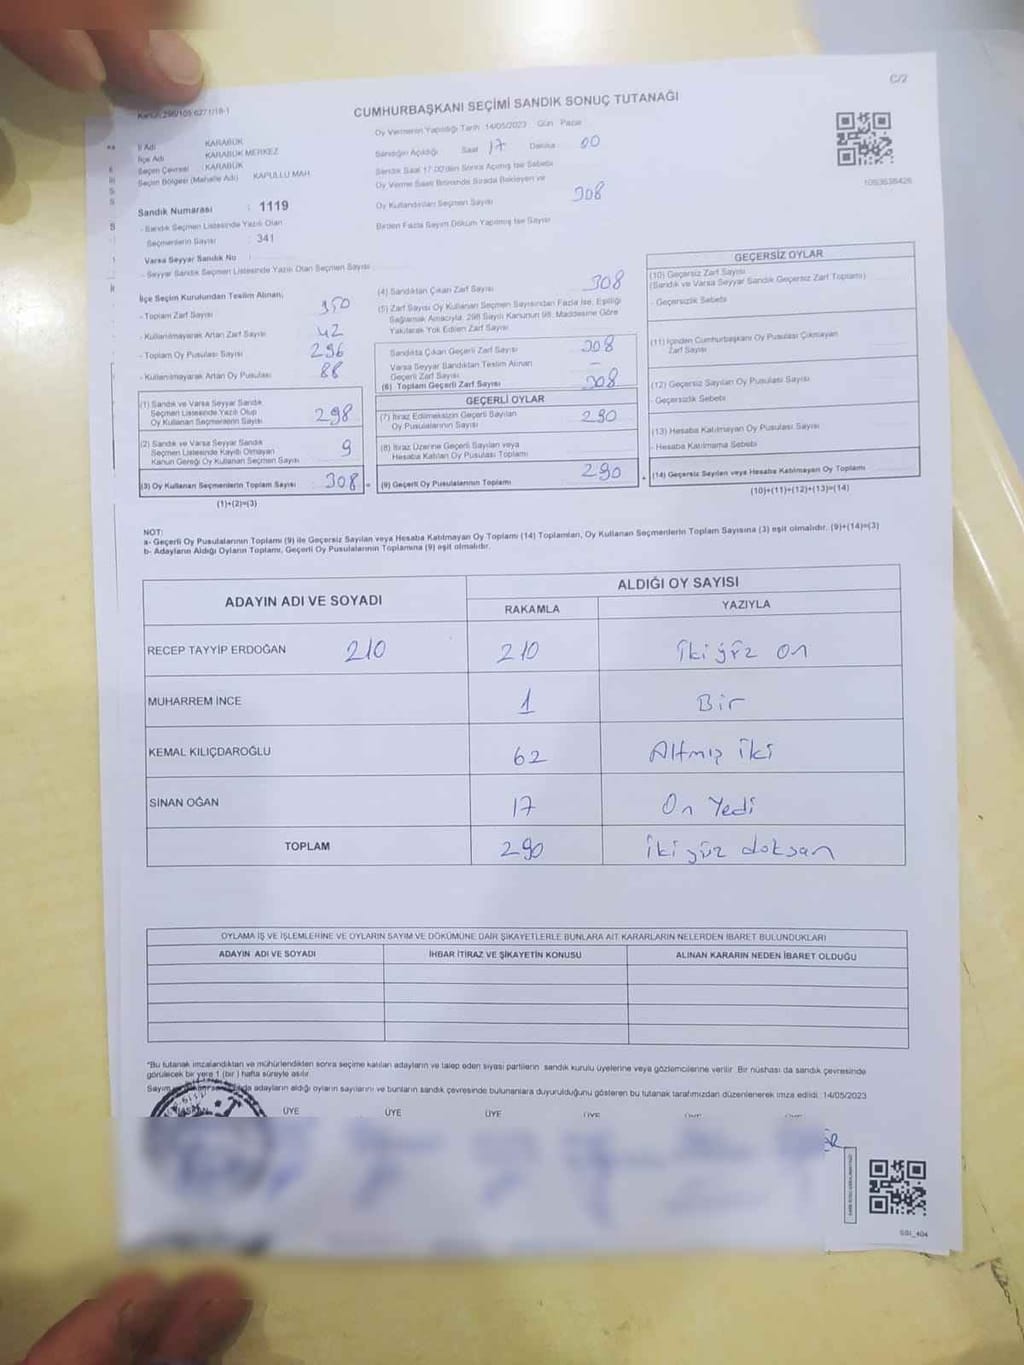 C/2
CUMHURBAŞKANI SEÇİMİ SANDIK SONUÇ TUTANAĞI
Oy Vermenin Yapıldığı Tarih :14/05/2023 Gün Pazar
İl Adı KARABÜK
İlçe Adı KARABÜK MERKEZ
Seçim Çevresi : KARABÜK
Seçim Bölgesi (Mahalle Adı) KAPULLU MAH.
Sandığın Açıldığı Saat 17 Dakika 00
Sandık Saat 17:00'den Sonra Açılmış İse Sebebi
Oy Verme Saati Bitiminde Sırada Bekleyen ve
Oy Kullandırılan Seçmen Sayısı 308
Birden Fazla Sayım Döküm Yapılmış İse Sayısı
1093638426
Sandık Numarası : 1119
- Sandık Seçmen Listesinde Yazılı Olan
Seçmenlerin Sayısı : 341
Varsa Seyyar Sandık No
- Seyyar Sandık Seçmen Listesinde Yazılı Olan Seçmen Sayısı
İlçe Seçim Kurulundan Teslim Alınan;
- Toplam Zarf Sayısı 350
- Kullanılmayarak Artan Zarf Sayısı 42
- Toplam Oy Pusulası Sayısı 296
- Kullanılmayarak Artan Oy Pusulası 88
(1) Sandık ve Varsa Seyyar Sandık
Seçmen Listesinde Yazılı Olup
Oy Kullanan Seçmenlerin Sayısı 298
(2) Sandık ve Varsa Seyyar Sandık
Seçmen Listesinde Kayıtlı Olmayan
Kanun Gereği Oy Kullanan Seçmen Sayısı 9
(3) Oy Kullanan Seçmenlerin Toplam Sayısı 308
(1)+(2)=(3)
(4) Sandıktan Çıkan Zarf Sayısı 308
(5) Zarf Sayısı Oy Kullanan Seçmen Sayısından Fazla İse, Eşitliği
Sağlamak Amacıyla, 298 Sayılı Kanunun 98. Maddesine Göre
Yakılarak Yok Edilen Zarf Sayısı
Sandıkta Çıkan Geçerli Zarf Sayısı 308
Varsa Seyyar Sandıktan Teslim Alınan
Geçerli Zarf Sayısı –
(6) Toplam Geçerli Zarf Sayısı 308
GEÇERLİ OYLAR
(7) İtiraz Edilmeksizin Geçerli Sayılan
Oy Pusulalarının Sayısı 290
(8) İtiraz Üzerine Geçerli Sayılan veya
Hesaba Katılan Oy Pusulası Toplamı
(9) Geçerli Oy Pusulalarının Toplamı 290
GEÇERSİZ OYLAR
(10) Geçersiz Zarf Sayısı
(Sandık ve Varsa Seyyar Sandık Geçersiz Zarf Toplamı)
- Geçersizlik Sebebi
(11) İçinden Cumhurbaşkanı Oy Pusulası Çıkmayan
Zarf Sayısı
(12) Geçersiz Sayılan Oy Pusulası Sayısı
- Geçersizlik Sebebi
(13) Hesaba Katılmayan Oy Pusulası Sayısı
- Hesaba Katılmama Sebebi
(14) Geçersiz Sayılan veya Hesaba Katılmayan Oy Toplamı
(10)+(11)+(12)+(13)=(14)
NOT:
a- Geçerli Oy Pusulalarının Toplamı (9) ile Geçersiz Sayılan veya Hesaba Katılmayan Oy Toplamı (14) Toplamları, Oy Kullanan Seçmenlerin Toplam Sayısına (3) eşit olmalıdır. (9)+(14)=(3)
b- Adayların Aldığı Oyların Toplamı, Geçerli Oy Pusulalarının Toplamına (9) eşit olmalıdır.
ADAYIN ADI VE SOYADI
ALDIĞI OY SAYISI
RAKAMLA YAZIYLA
RECEP TAYYİP ERDOĞAN 210 210 İki yüz on
MUHARREM İNCE 1 Bir
KEMAL KILIÇDAROĞLU 62 Altmış iki
SİNAN OĞAN 17 On Yedi
TOPLAM 290 iki yüz doksan
OYLAMA İŞ VE İŞLEMLERİNE VE OYLARIN SAYIM VE DÖKÜMÜNE DAİR ŞİKAYETLERLE BUNLARA AİT KARARLARIN NELERDEN İBARET BULUNDUKLARI
ADAYIN ADI VE SOYADI İHBAR İTİRAZ VE ŞİKAYETİN KONUSU ALINAN KARARIN NEDEN İBARET OLDUĞU
"Bu tutanak imzalandıktan ve mühürlendikten sonra seçime katılan adayların ve talep eden siyasi partilerin sandık kurulu üyelerine veya gözlemcilerine verilir. Bir nüshası da sandık çevresinde
görülecek bir yere 1 (bir ) hafta süreyle asılır.
Sayım adayların aldığı oyların sayılarını ve bunların sandık çevresinde bulunanlara duyurulduğunu gösteren bu tutanak tarafımızdan düzenlenerek imza edildi. 14/05/2023
ÜYE ÜYE ÜYE ÜYE
SSI_404